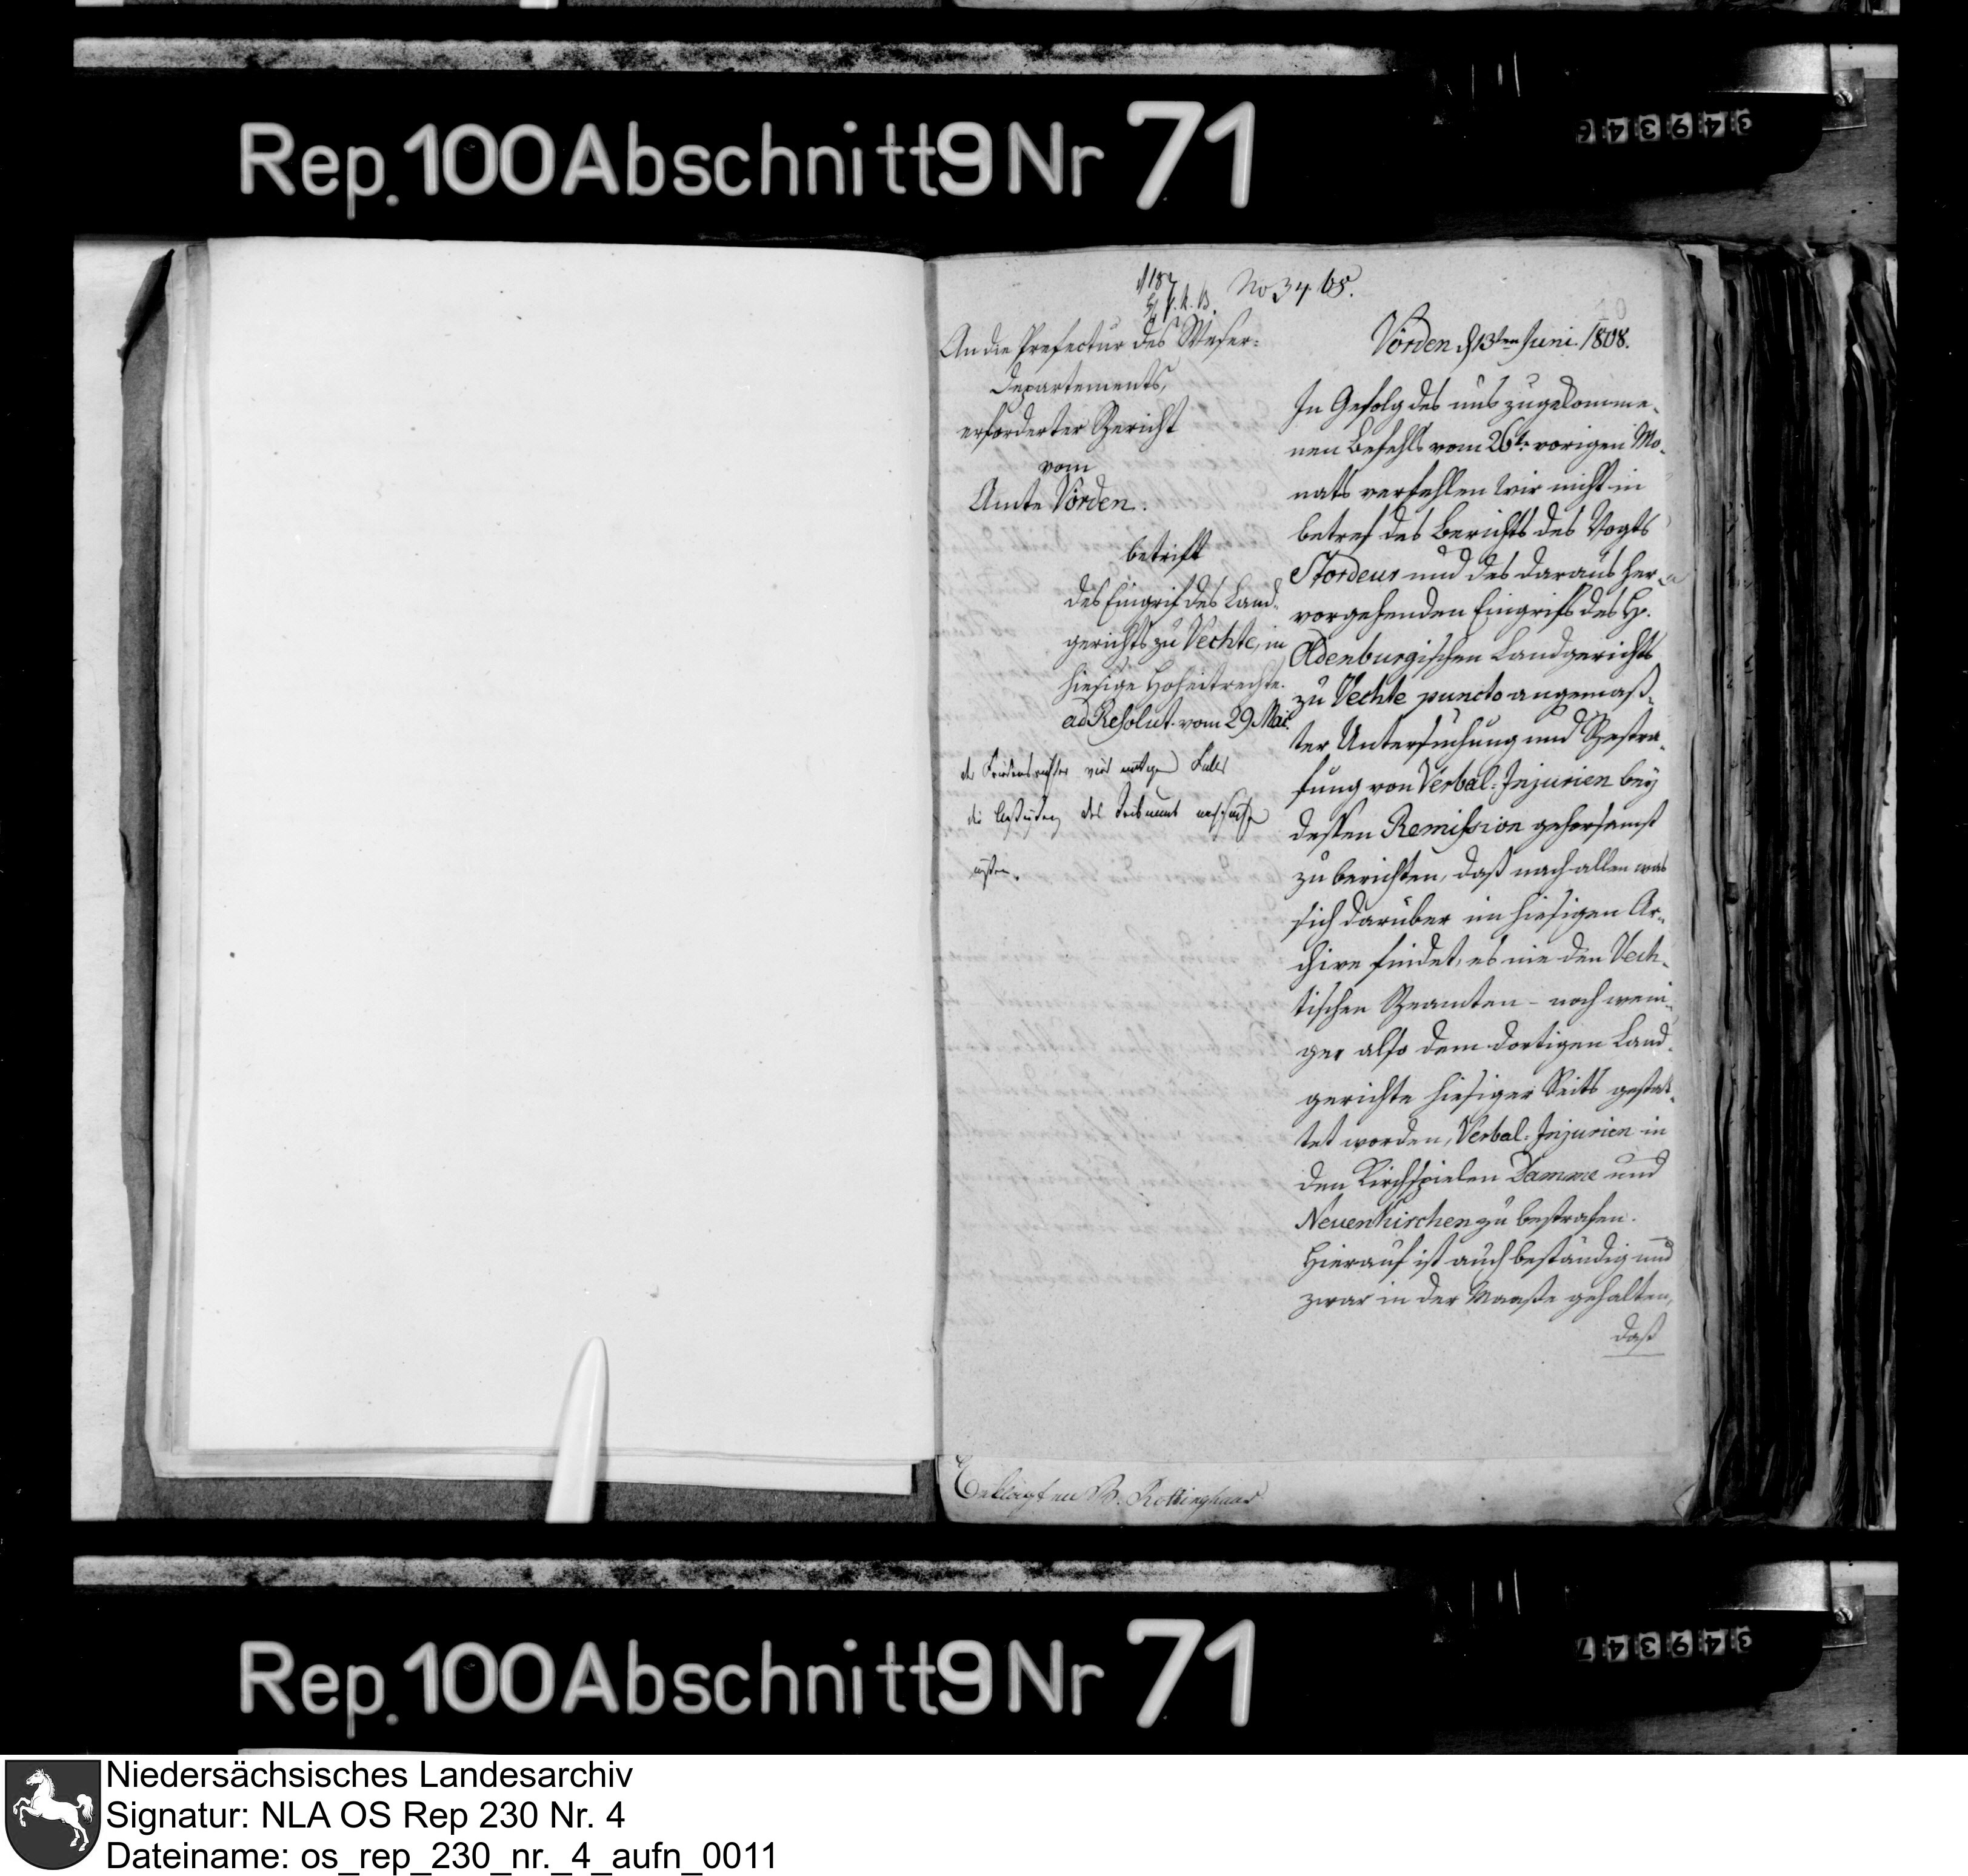 Rep. 100 Abschnitt 9 Nr 71
349346
No 3465.
An die Prefectur des Weser-
Departements,
erforderter Bericht
vom
Amte Vörden.
betrift
des Eingrif des Land-
gerichts zu Vechte, in
hiesige Hoheitrechte.
ad Resolut. vom 29 Mai.
Vörden d 13ten Juni. 1808.
In Gefolg des uns zugekomme-
nen Befehls vom 26ten vorigen Mo-
nats verfehlen wir nicht in
betref des Berichts des Vogts
Stordeur und des daraus her-
vorgehenden Eingrifs des H.
Oldenburgischen Landgerichts
zu Vechte puncto angemaß-
ter Untersuchung und Bestra-
fung von Verbal-Injurien bey
dessen Remission gehorsamst
zu berichten, daß nach allen was
sich darüber im hiesigen Ar-
chive findet, es nie den Vech-
tischen Beamten - noch weni-
ger also dem dortigen Land-
gerichte hiesiger Seits gestat-
tet worden, Verbal-Injurien in
den Kirchspielen Damme und
Neuenkirchen zu bestrafen.
Hierauf ist auch beständig und
zwar in der Maaße gehalten,
daß
Rottinghaus
Rep. 100 Abschnitt 9 Nr 71
349347
Niedersächsisches Landesarchiv
Signatur: NLA OS Rep 230 Nr. 4
Dateiname: os_rep_230_nr._4_aufn_0011